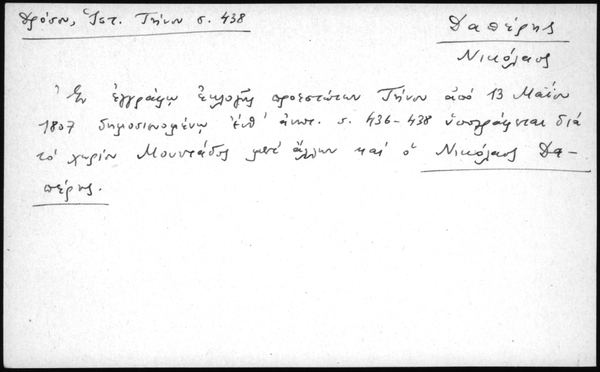 Δρόσου, Ἱστ. Τήνου σ. 438
Δαπέρης
Νικόλαος
Ἐν ἐγγράφῳ ἐκλογῆς προεστώτων Τήνου ἀπό 13 Μαΐου
1807 δημοσιευομένῳ ἔνθ' ἀνωτ. σ. 436-438 ὑπογράφεται διά
τό χωρίον Μουντάδος μετ' ἄλλων καί ὁ Νικόλαος Δα-
πέρης.